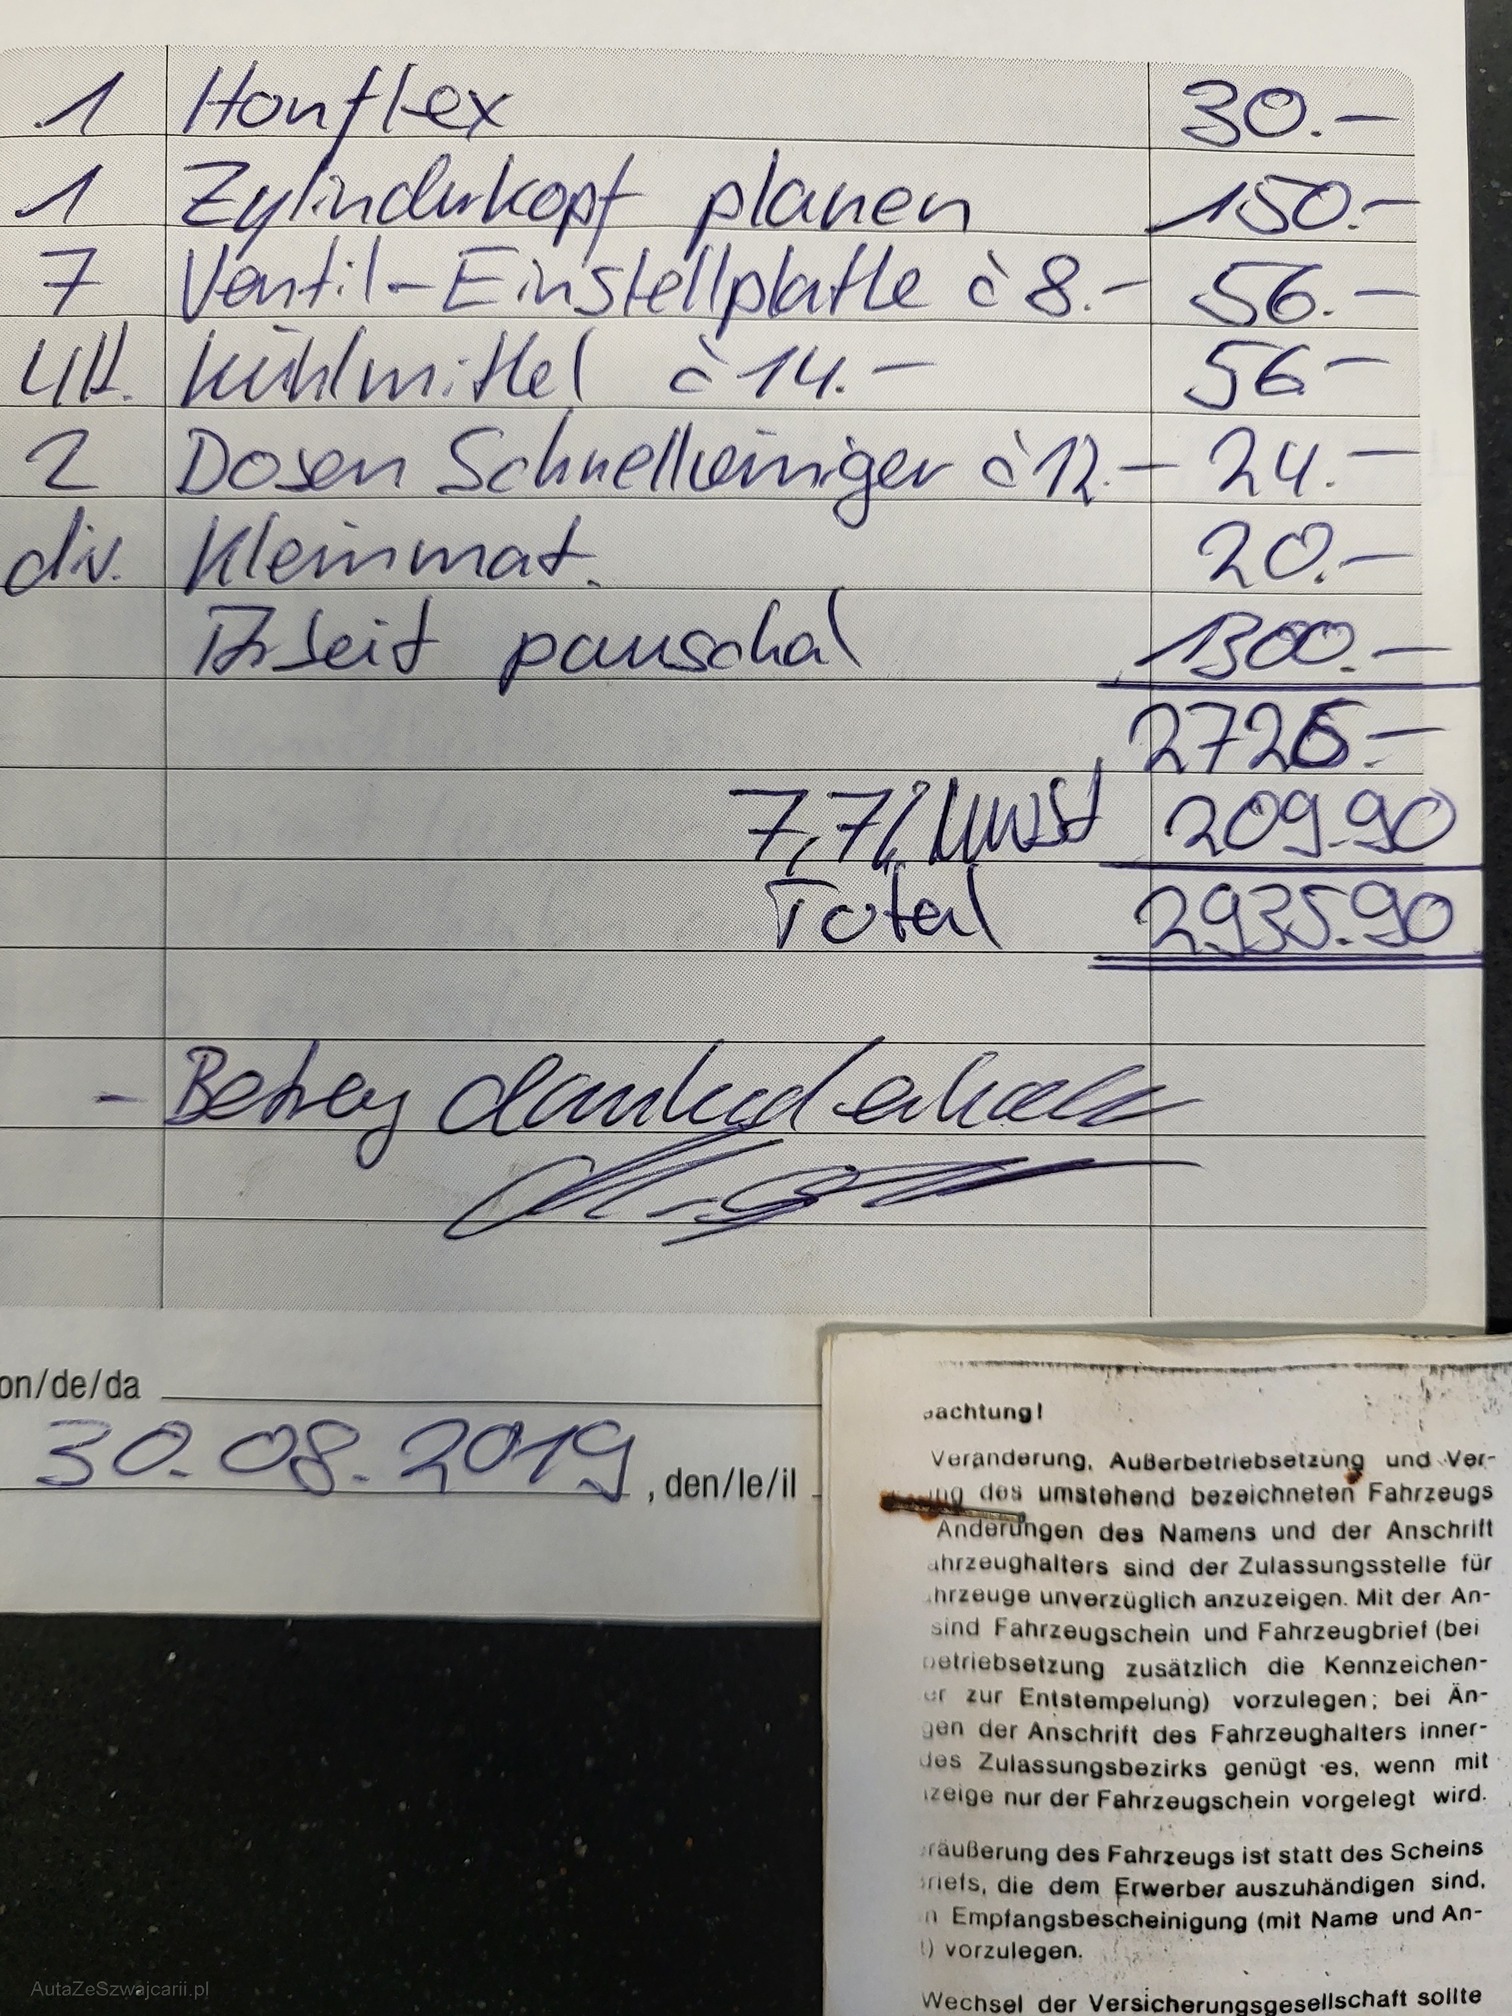 1 Honflex 30.-
1 Zylinderkopf planen 150.-
7 Ventil-Einstellplatte à 8.- 56.-
4 lt. Kühlmittel à 14.- 56.-
2 Dosen Schnellreiniger à 12.- 24.-
div. Kleinmat. 20.-
Arbeit pauschal 1300.-
2726.-
7,7% Mwst 209.90
Total 2935.90
- Betrag dankend erhalten
on/de/da
30.08.2019, den/le/il
achtung!
Veränderung, Außerbetriebsetzung und Ver-
ung des umstehend bezeichneten Fahrzeugs
Änderungen des Namens und der Anschrift
ahrzeughalters sind der Zulassungsstelle für
hrzeuge unverzüglich anzuzeigen. Mit der An-
sind Fahrzeugschein und Fahrzeugbrief (bei
betriebsetzung zusätzlich die Kennzeichen-
er zur Entstempelung) vorzulegen; bei Än-
gen der Anschrift des Fahrzeughalters inner-
des Zulassungsbezirks genügt es, wenn mit
zeige nur der Fahrzeugschein vorgelegt wird.
räußerung des Fahrzeugs ist statt des Scheins
riefs, die dem Erwerber auszuhändigen sind,
n Empfangsbescheinigung (mit Name und An-
t) vorzulegen.
Wechsel der Versicherungsgesellschaft sollte
AutaZeSzwajcarii.pl